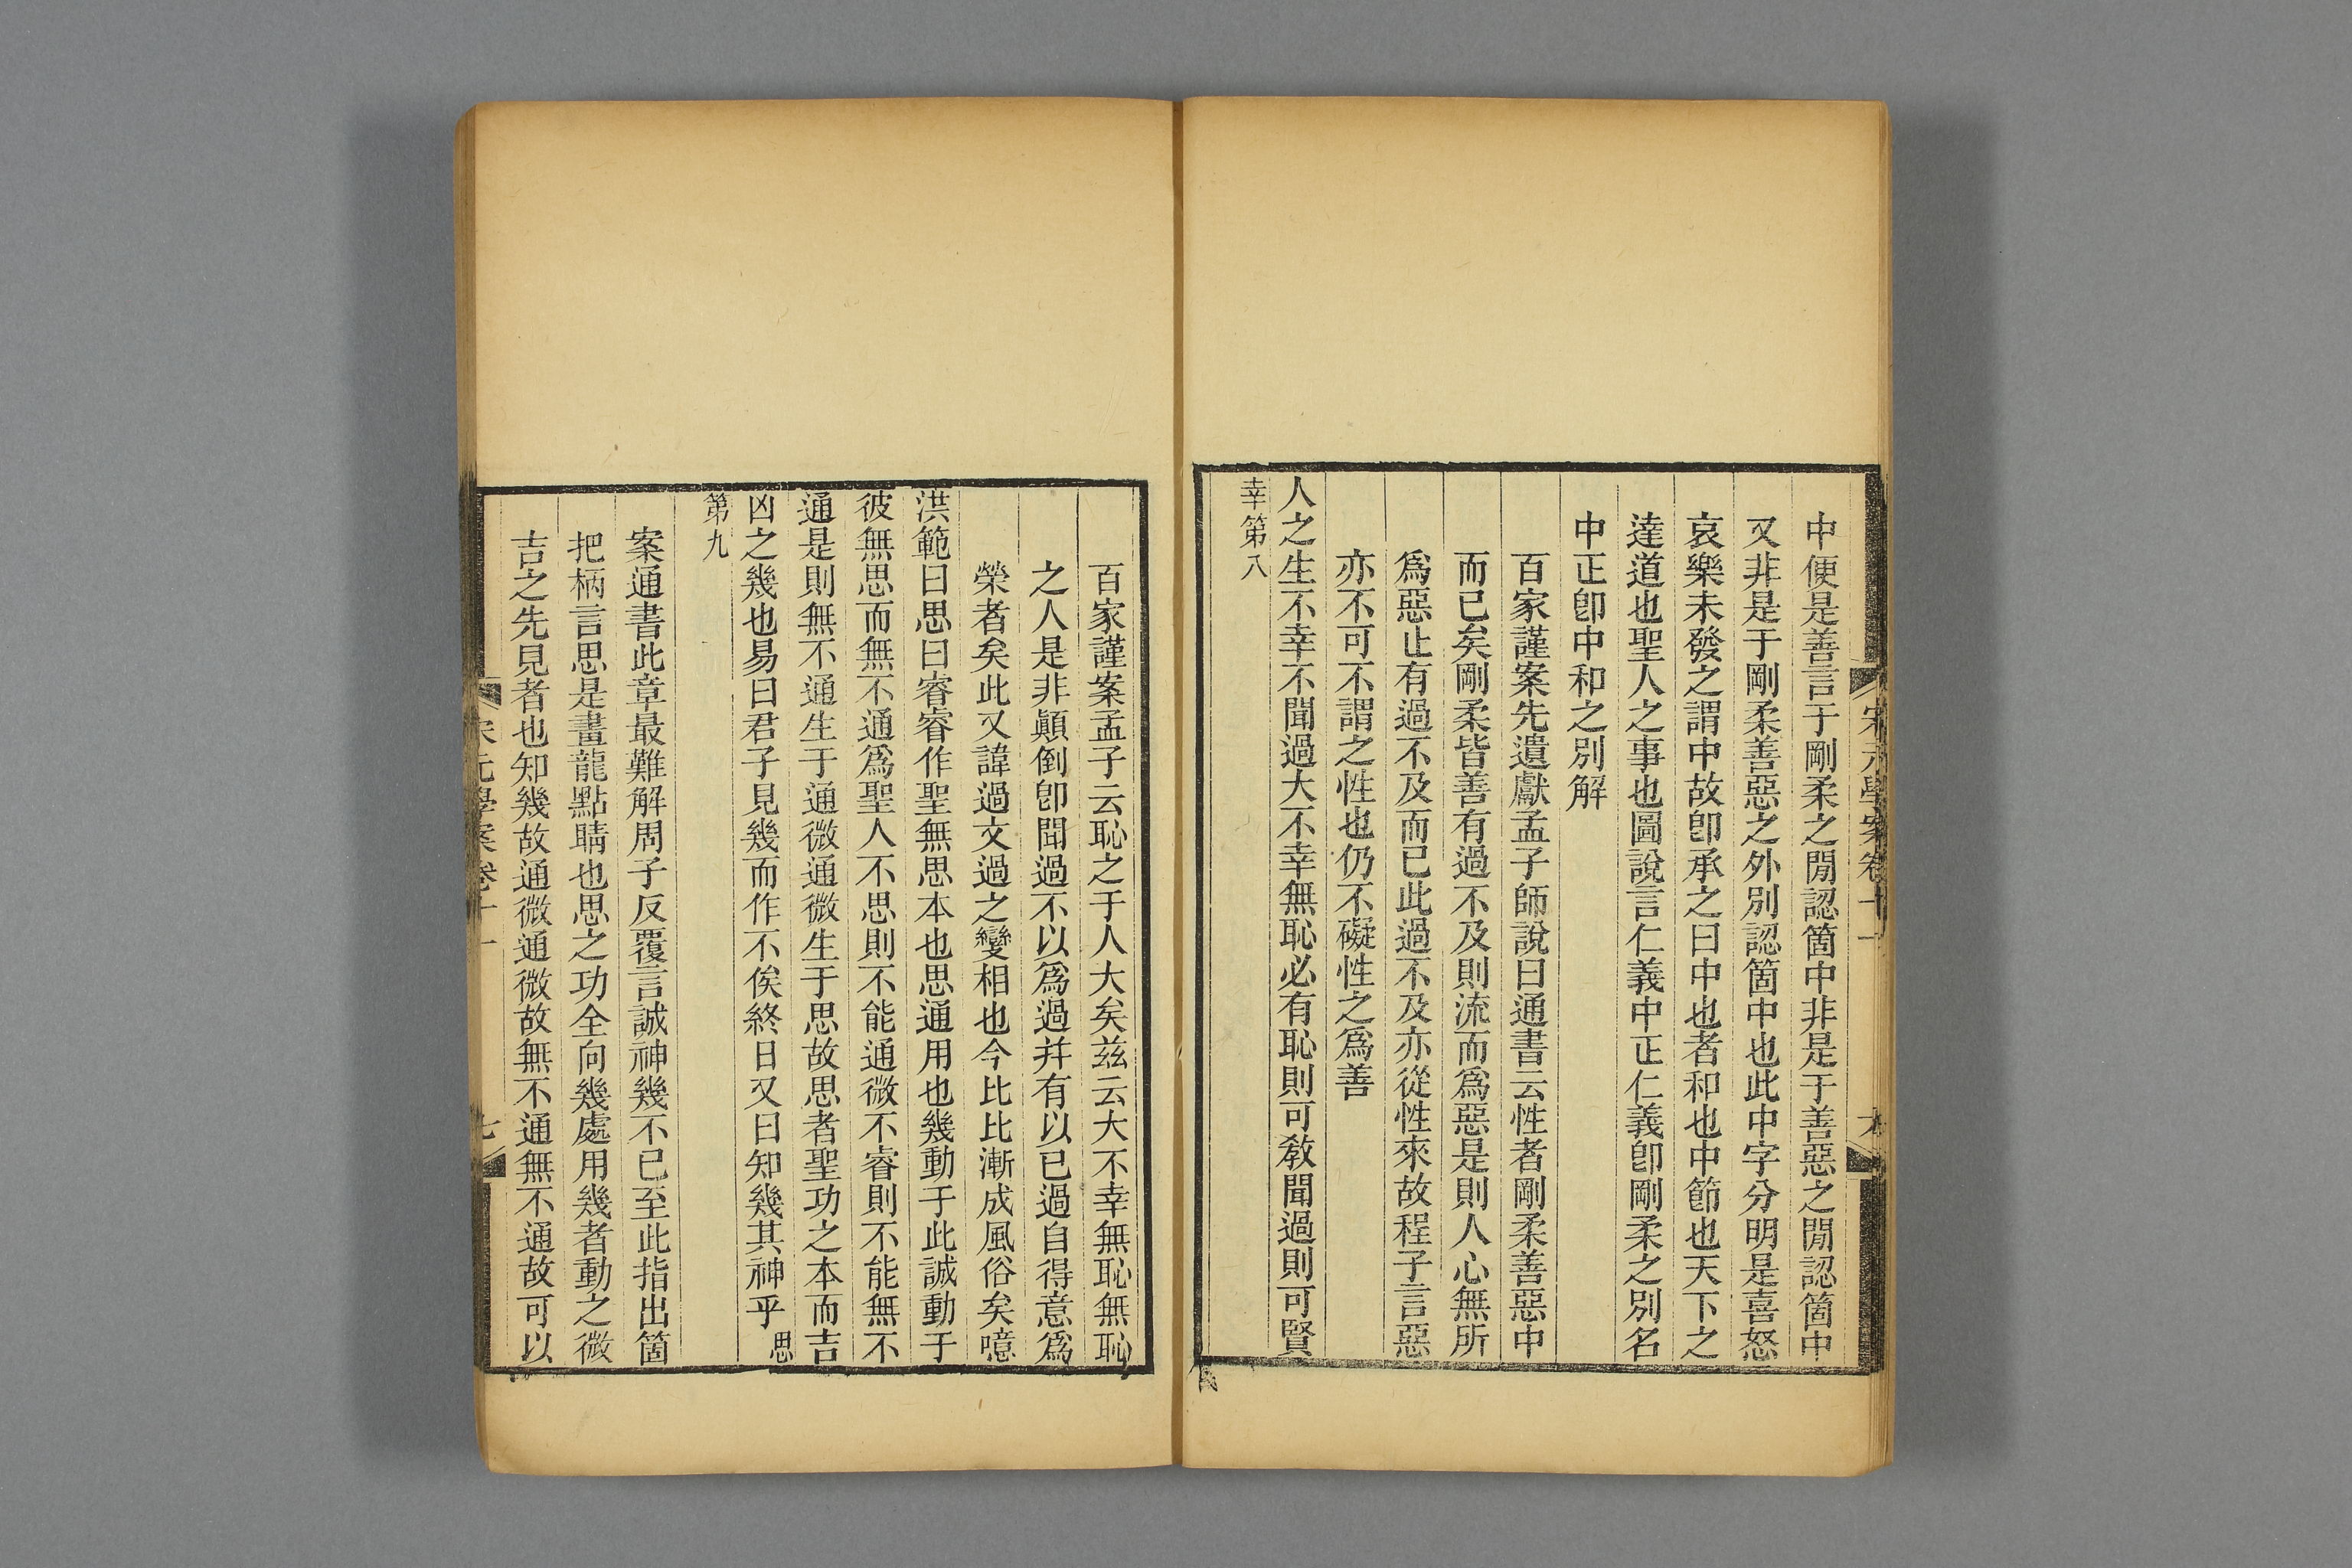 宋元學案卷十一
中便是善言于剛柔之閒認箇中非是于善惡之閒認箇中
又非是于剛柔善惡之外別認箇中也此中字分明是喜怒
哀樂未發之謂中故卽承之曰中也者和也中節也天下之
達道也聖人之事也圖說言仁義中正仁義卽剛柔之別名
中正卽中和之別解
百家謹案先遺獻孟子師說曰通書云性者剛柔善惡中
而已矣剛柔皆善有過不及則流而爲惡是則人心無所
爲惡止有過不及而已此過不及亦從性來故程子言惡
亦不可不謂之性也仍不礙性之爲善
人之生不幸不聞過大不幸無恥必有恥則可敎聞過則可賢
幸第八
百家謹案孟子云恥之于人大矣茲云大不幸無恥無恥
之人是非顚倒卽聞過不以爲過幷有以已過自得意爲
榮者矣此又諱過文過之變相也今比比漸成風俗矣噫
洪範曰思曰睿睿作聖無思本也思通用也幾動于此誠動于
彼無思而無不通爲聖人不思則不能通微不睿則不能無不
通是則無不通生于通微通微生于思故思者聖功之本而吉
凶之幾也易曰君子見幾而作不俟終日又曰知幾其神乎思
第九
案通書此章最難解周子反覆言誠神幾不已至此指出箇
把柄言思是畫龍點睛也思之功全向幾處用幾者動之微
吉之先見者也知幾故通微通微故無不通無不通故可以
宋元學案卷十一
七